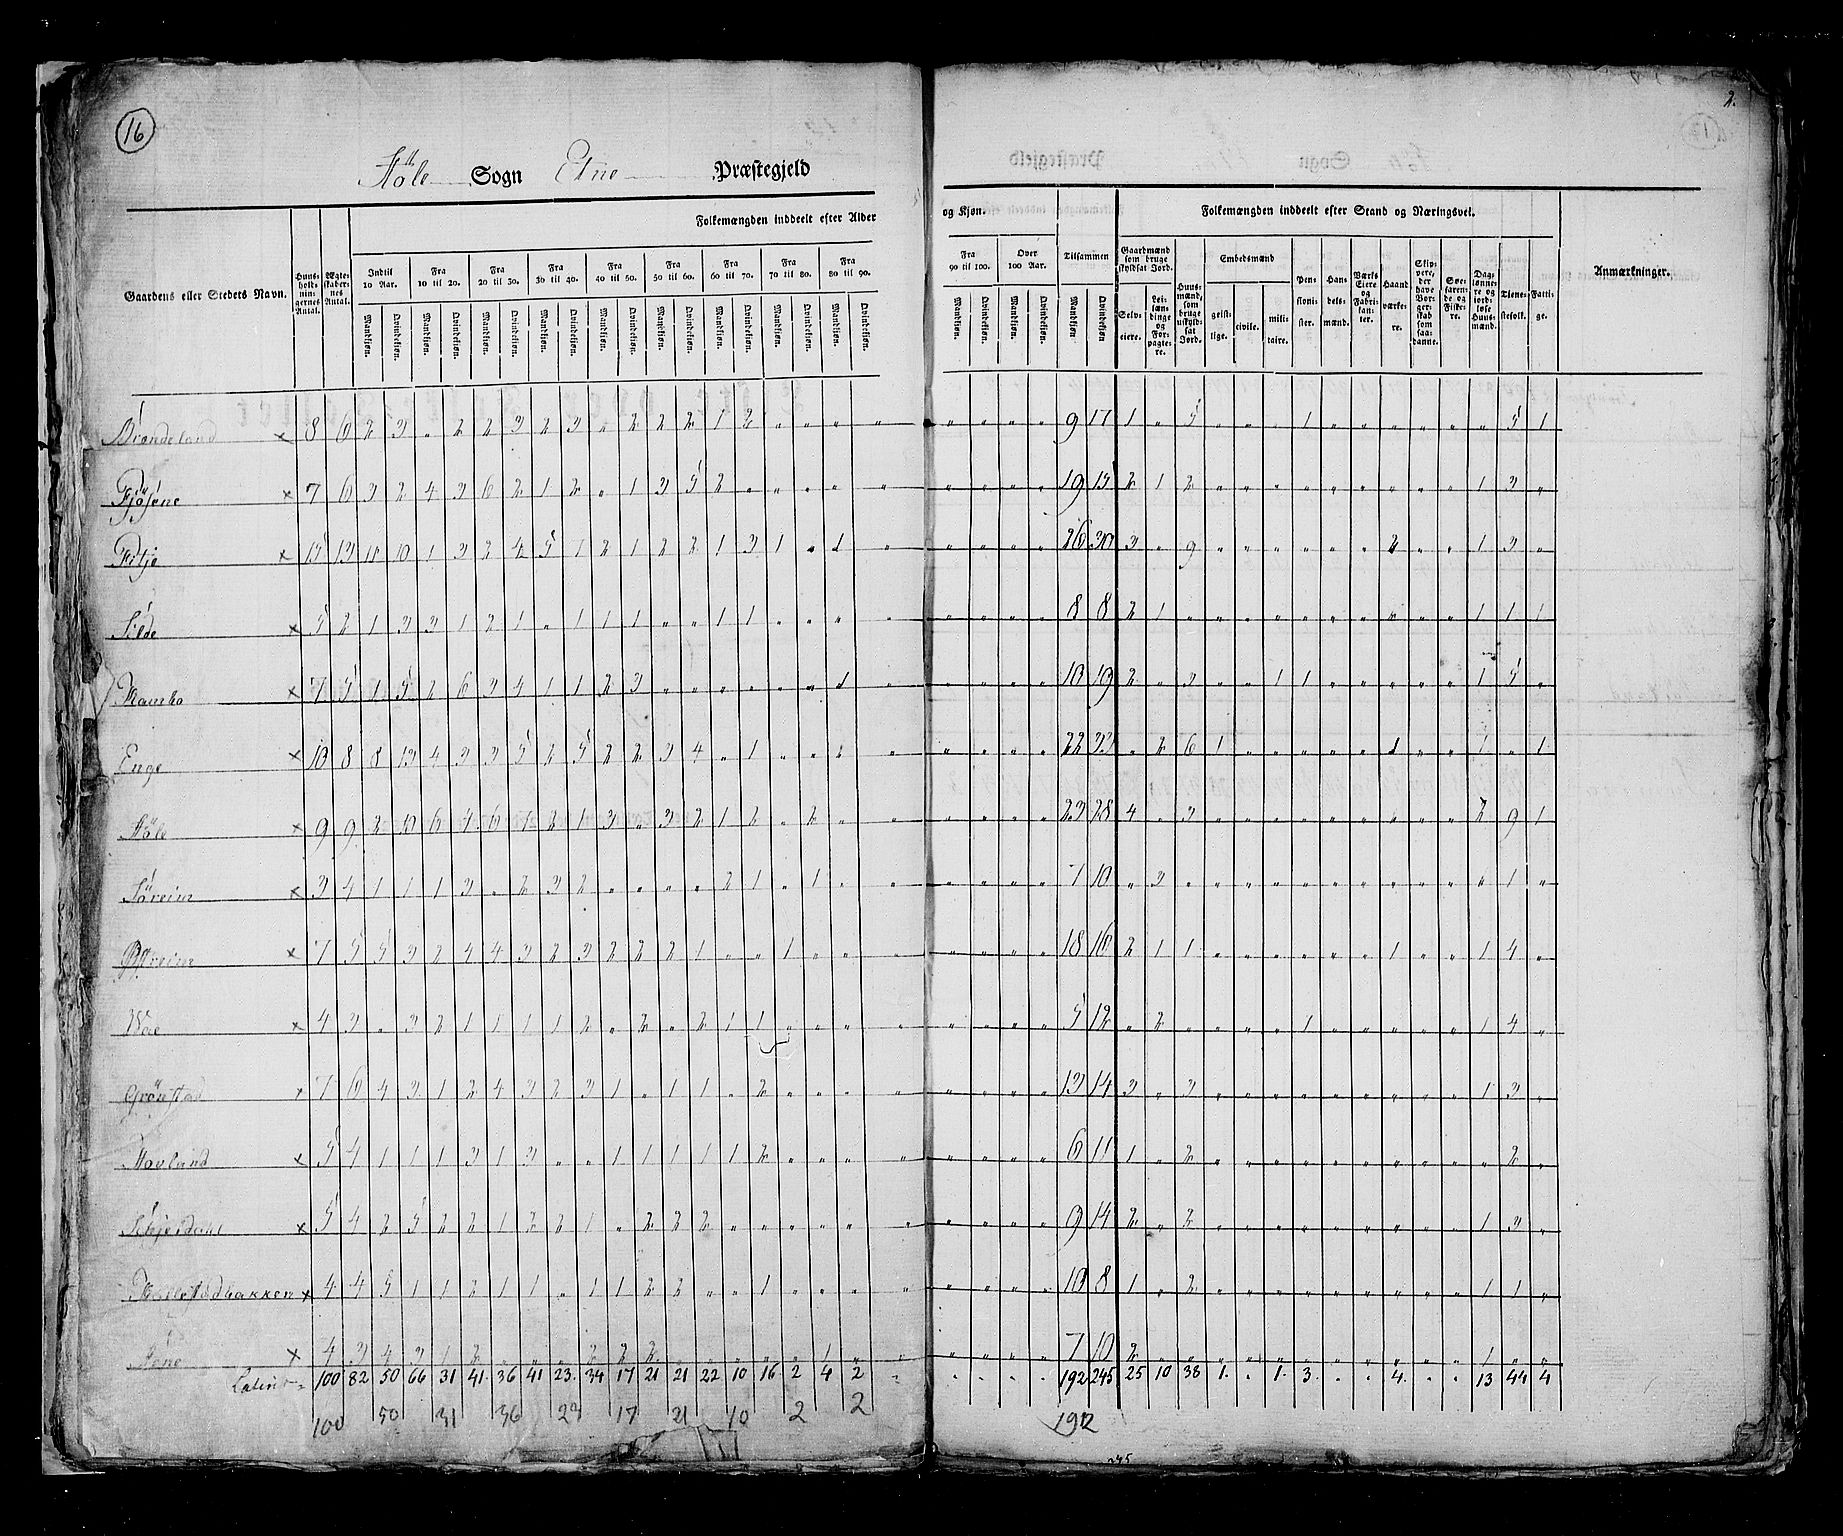 16
2.
Støle Sogn Etne Præstegjeld
Folkemængden inddeelt efter Alder og Kjøn. Folkemængden inddeelt efter Stand og Næringsvei.
Gaardens eller Stedets Navn. Huusholdningernes Antal. Ægteskabernes Antal. Indtil 10 Aar. Fra 10 til 20. Fra 20 til 30. Fra 30 til 40. Fra 40 til 50. Fra 50 til 60. Fra 60 til 70. Fra 70 til 80. Fra 80 til 90. Fra 90 til 100. Over 100 Aar. Tilsammen Gaardmænd som bruge skyldsat Jord. Huusmænd, som bruge uskyldsat Jord. Embedsmænd Pensionister. Handelsmænd. Værks Eiere og Fabrikanter. Haandværkere. Skippere, der have Borgerskab som saadanne. Søefarende og Fiskere. Daglønnere og jordløse Huusmænd. Tjenestefolk. Fattige. Anmærkninger.
Mandkjøn. Qvindekjøn. Mandkjøn. Qvindekjøn. Mandkjøn. Qvindekjøn. Mandkjøn. Qvindekjøn. Mandkjøn. Qvindekjøn. Mandkjøn. Qvindekjøn. Mandkjøn. Qvindekjøn. Mandkjøn. Qvindekjøn. Mandkjøn. Qvindekjøn. Mandkjøn. Qvindekjøn. Mandkjøn. Qvindekjøn. Mandkjøn Qvindekjøn Selveiere. Leilændinge og Forpagtere. geistlige. civile. militaire.
× 8 6 2 3 „ 2 2 3 2 3 „ 2 2 2 1 2 „ „ „ „ „ „ „ „ 9 17 1 „ 5 „ „ „ 1 „ „ „ „ „ „ 5 1
Fjøsene × 7 6 3 2 4 3 6 2 1 2 „ 1 3 5 2 „ „ „ „ „ „ „ „ „ 19 15 2 1 2 „ „ „ „ „ „ „ „ „ 1 3 „
Fitje × 15 13 11 10 1 3 2 4 5 1 2 1 2 2 1 3 1 „ 1 „ „ „ „ „ 26 30 3 „ 9 „ „ „ „ „ „ 2 „ „ 1 3 „
Silde × 5 2 1 3 3 1 2 1 „ 1 1 1 „ „ 1 1 „ „ „ „ „ „ „ „ 8 8 2 1 „ „ „ „ „ „ „ „ „ „ 1 1 1
× 7 5 1 5 2 6 3 4 1 1 2 3 „ „ „ „ „ „ 1 „ „ „ „ „ 10 19 2 „ 3 „ „ 1 1 „ „ „ „ „ 1 5 „
Enge × 10 8 8 13 4 3 3 5 2 5 2 2 3 4 „ 1 „ „ „ „ „ „ „ 22 33 „ 2 6 1 „ „ „ „ „ 1 „ „ 1 „ 1
Støle × 9 9 2 10 6 4 6 7 2 1 3 „ 3 2 1 2 „ 2 „ „ „ „ „ „ 23 28 4 „ 3 „ „ „ „ „ „ „ „ „ 2 9 1
Søreim × 3 4 1 1 1 3 „ 2 3 2 „ „ „ „ 2 1 „ 1 „ „ „ „ „ „ 7 10 „ 3 „ „ „ „ „ „ „ „ „ „ „ 1 „
× 7 5 5 3 2 4 4 3 2 3 2 2 2 1 „ „ 1 „ „ „ „ „ „ „ 18 16 2 1 1 „ „ „ „ „ „ 1 „ „ 1 4 „
× 4 3 „ 3 2 1 1 1 1 2 „ 2 „ 2 1 1 „ „ „ „ „ „ „ „ 5 12 „ 2 „ „ „ „ 1 „ „ „ „ „ 1 4 „
Grönstad × 7 6 4 3 1 2 4 3 2 3 1 „ 1 1 „ 2 „ „ „ „ „ „ „ „ 13 14 3 „ 3 „ „ „ „ „ „ „ „ „ 1 3 „
Hovland × 5 4 1 1 1 3 1 3 „ „ 1 1 1 1 1 2 „ „ „ „ „ „ „ „ 6 11 1 „ 2 „ „ „ „ „ „ „ „ „ „ 2 „
Skjeldahl × 5 4 2 5 2 2 1 2 2 1 „ 2 2 2 „ „ „ „ „ „ „ „ „ „ 9 14 2 „ 2 „ „ „ „ „ „ „ „ „ 1 3 „
× 4 4 5 1 1 2 1 1 „ 1 1 2 2 „ „ 1 „ „ „ „ „ „ „ „ 10 8 1 „ 2 „ „ „ „ „ „ „ „ „ 1 1 „
× 4 3 4 3 1 2 „ „ „ 2 2 2 „ „ „ „ „ 1 „ „ „ „ „ „ 7 10 2 „ „ „ „ „ „ „ „ „ „ „ 1 „ „
Lateris 100 82 50 66 31 41 36 41 23 34 17 21 21 22 10 16 2 4 2 „ „ „ „ „ 192 245 25 10 38 1 „ 1 3 „ „ 4 „ „ 13 44 4
100 50 31 36 23 17 21 10 2 2 192
245